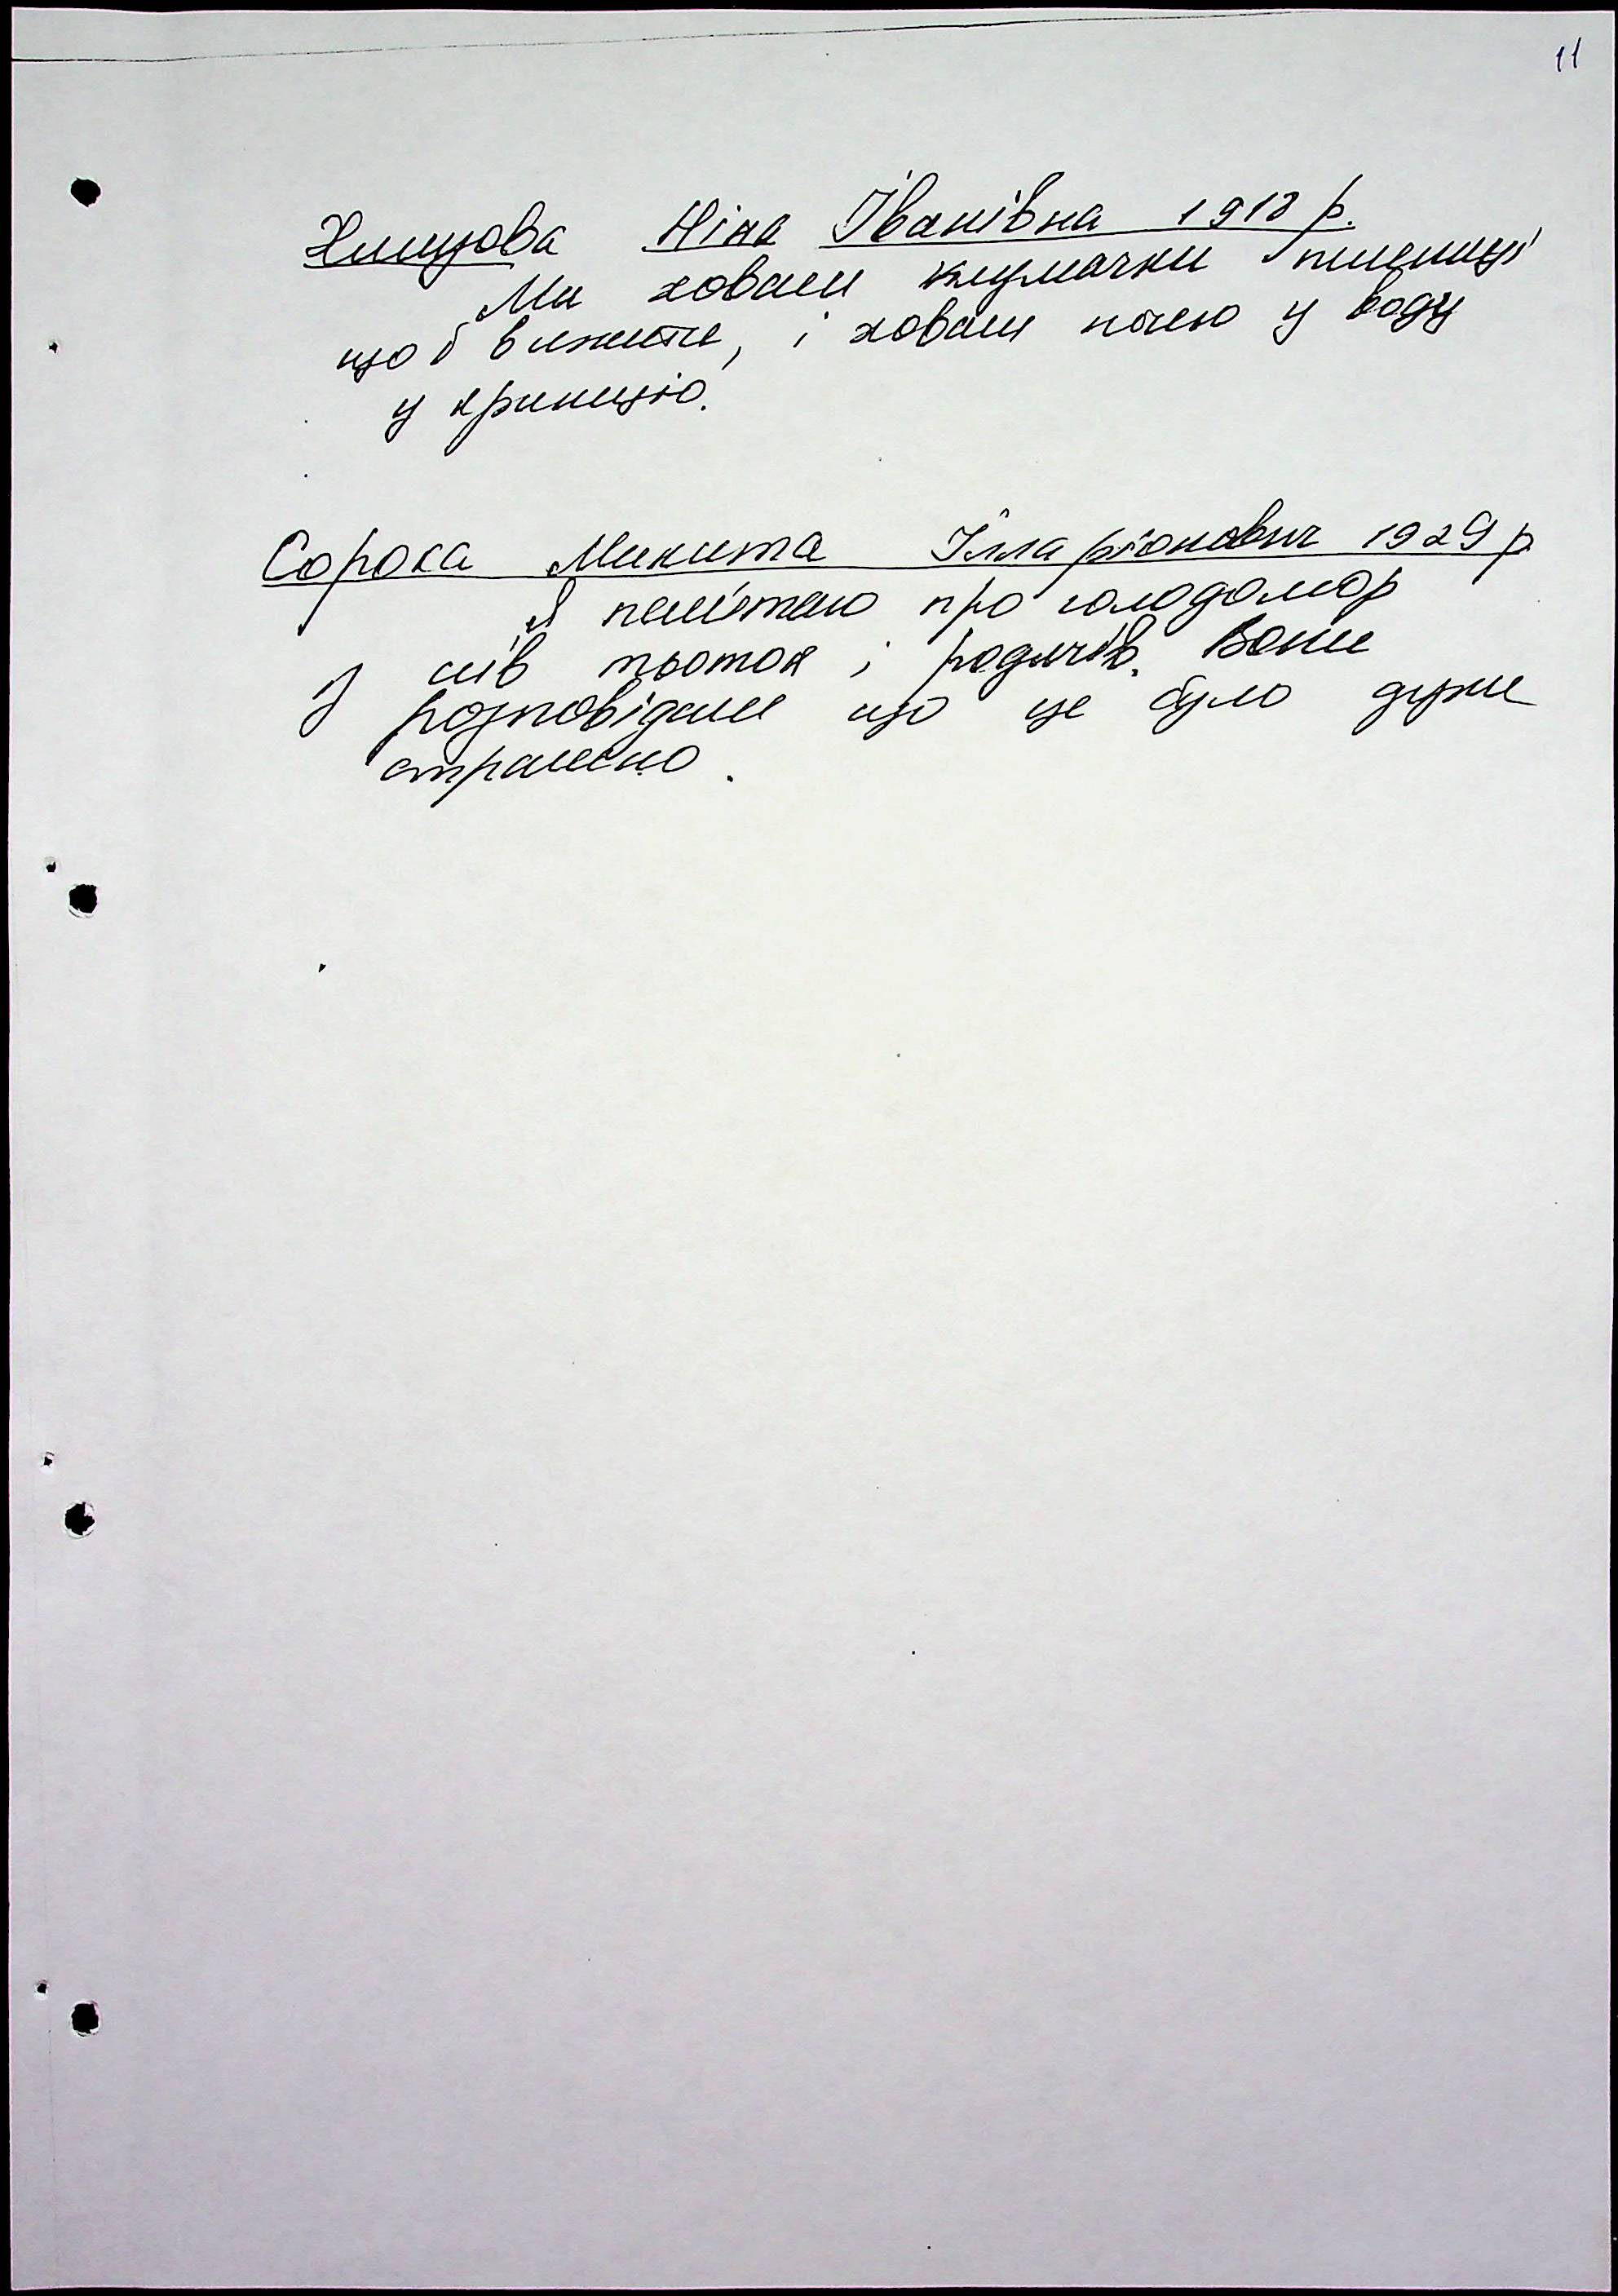 11
Ніна Іванівна 1918 р.
Ми ховали клумачки пшениці
щоб вижити, і ховали ночею у воду
у криницю.
Сорока Микита Ілларіонович 1929 р
Я пам'ятаю про голодомор
З слів тьоток і родичів. Вони
розповідали що це було дуже
страшно.